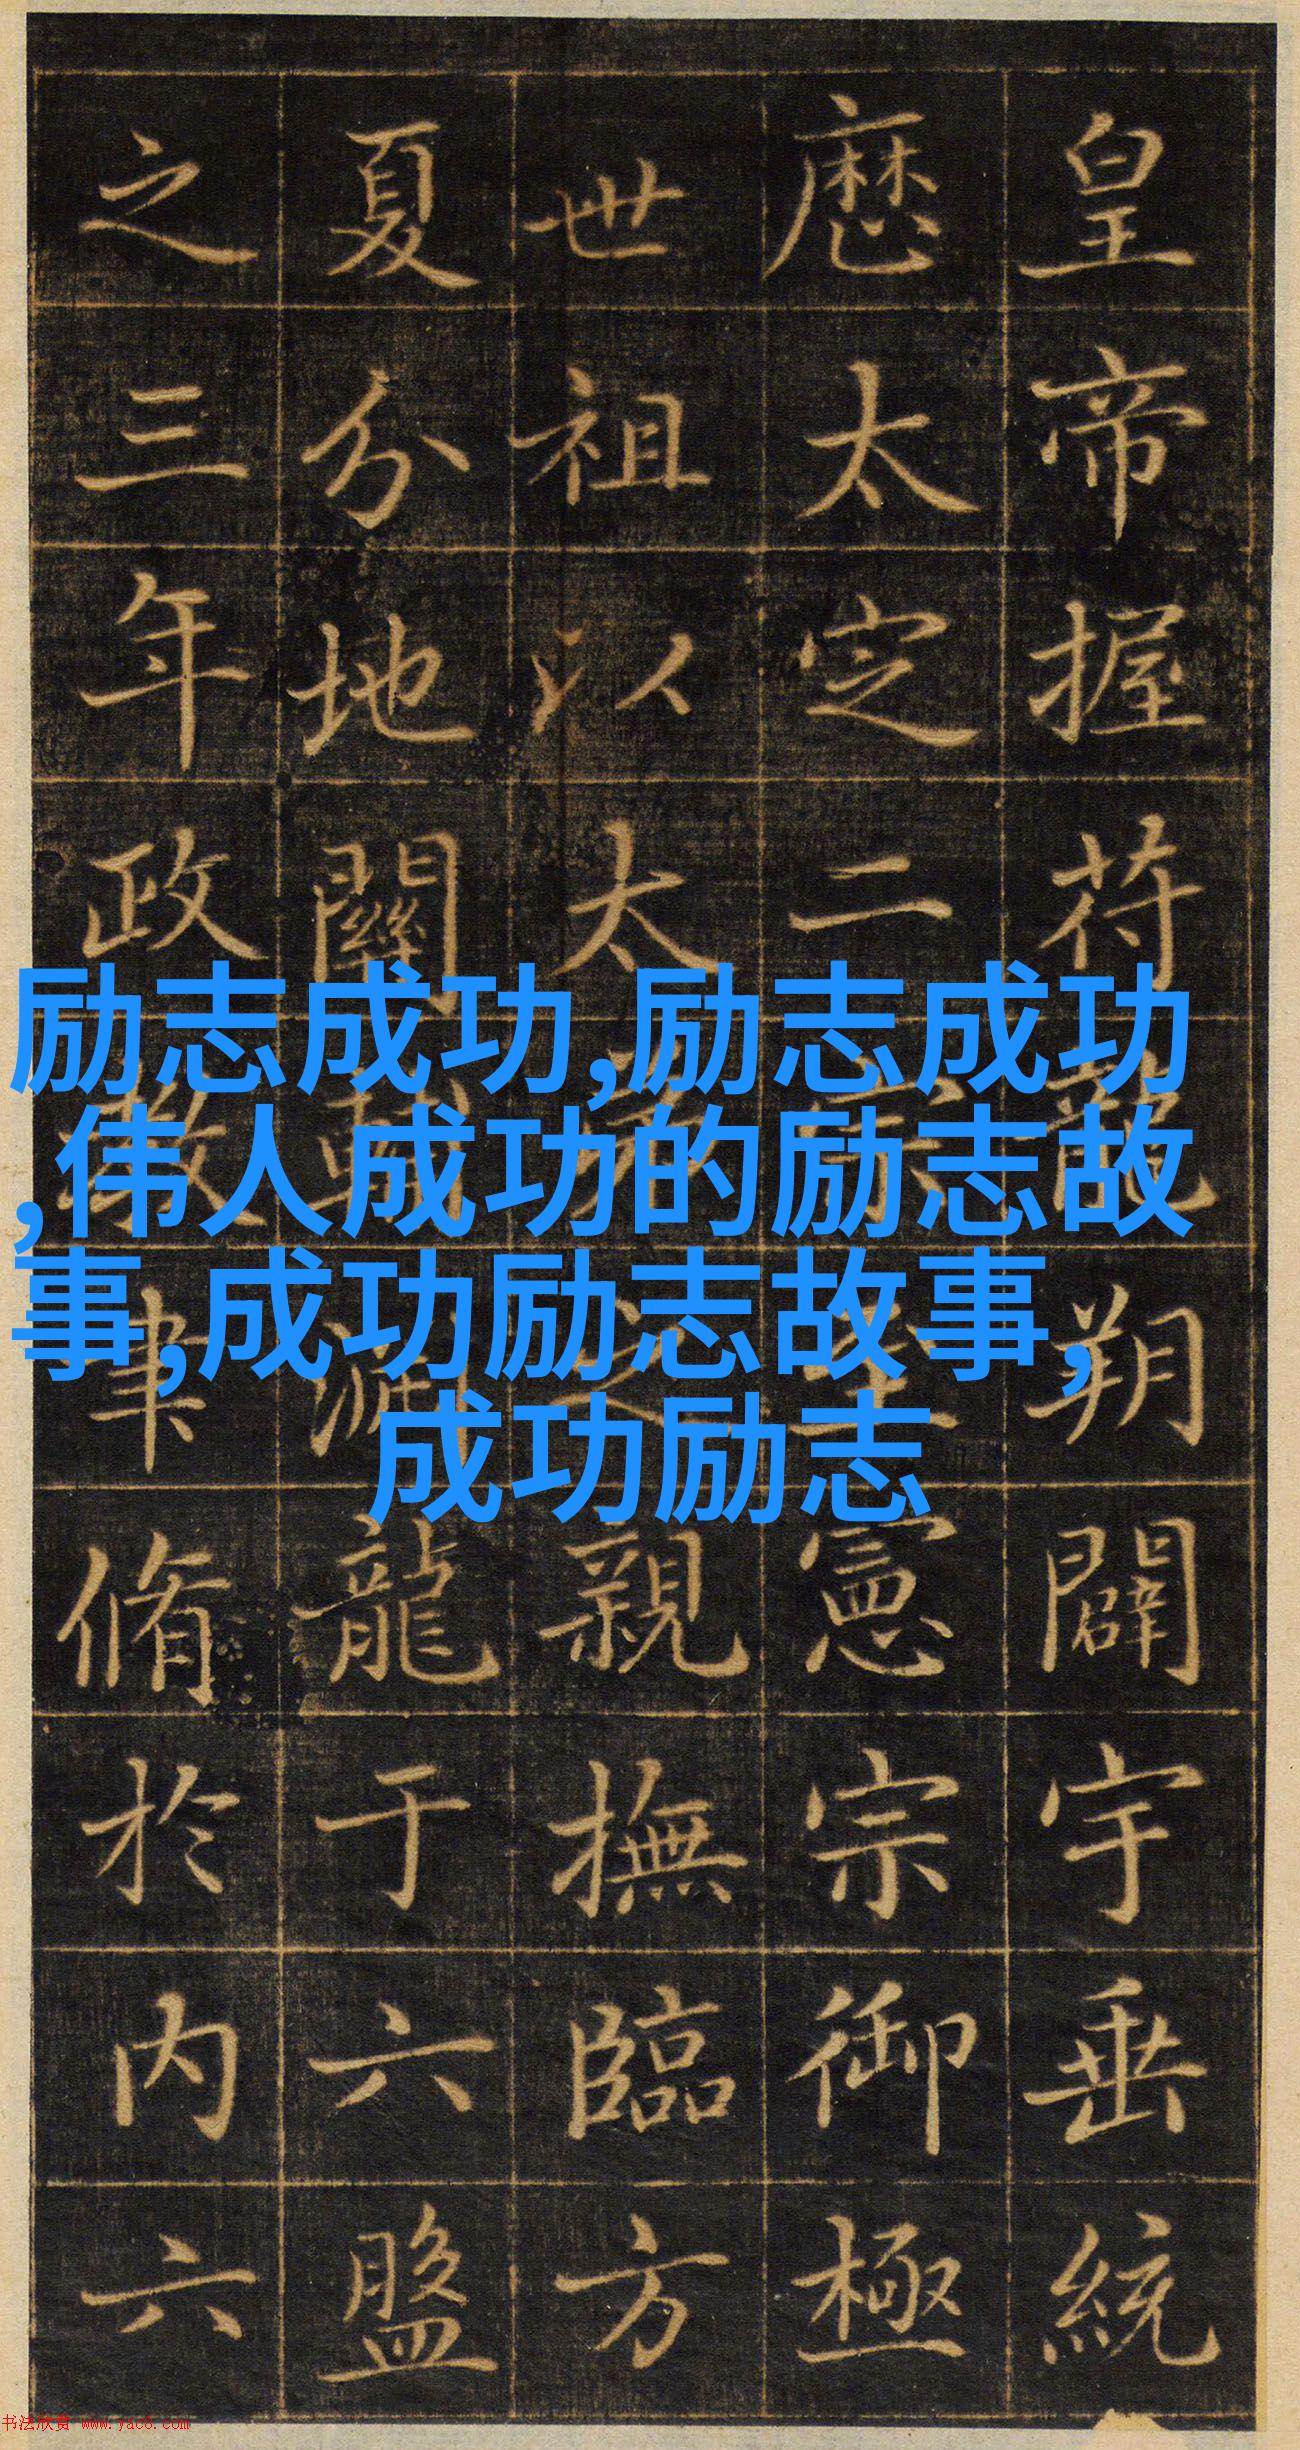 皇帝握符龍朔闢宇垂統
歷太定二憲宗御極
世祖以太之親撫臨方
夏分地關淵龍于六盤
之三年政教聿脩於內六
励志成功,励志成功
,伟人成功的励志故
事,成功励志故事,
成功励志
书法欣赏 www.yac8.com